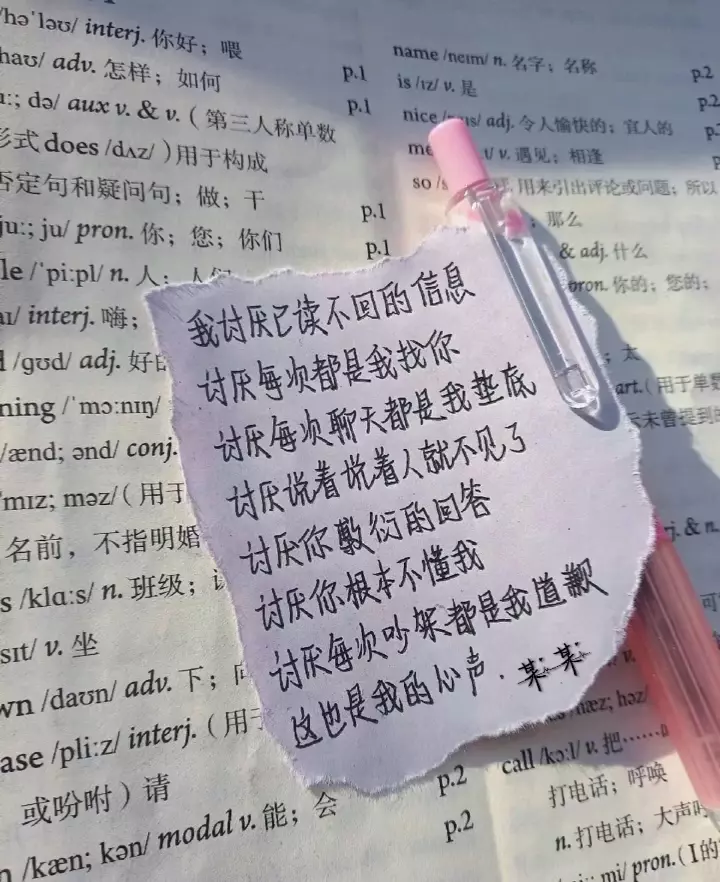 /hə'ləʊ/ interj. 你好；喂
haʊ/ adv. 怎样；如何 p.1
uː; də/ aux v. & v.（第三人称单数 p.1
形式 does /dʌz/）用于构成
否定句和疑问句；做；干 p.1
juː; ju/ pron. 你；您；你们 p.1
le /'piːpl/ n. 人；人们
aɪ/ interj. 嗨；
/ɡʊd/ adj. 好的
ning /'mɔːnɪŋ/
/ænd; ənd/ conj.
'mɪz; məz/（用于
名前，不指明婚
s /klɑːs/ n. 班级；
sɪt/ v. 坐
wn /daʊn/ adv. 下；向
ase /pliːz/ interj.（用于
或吩咐）请 p.2
n /kæn; kən/ modal v. 能；会 p.2
name /neɪm/ n. 名字；名称 p.2
is /ɪz/ v. 是 p.2
nice adj. 令人愉快的；宜人的
v. 遇见；相逢
so 用来引出评论或问题；所以
；那么
& adj. 什么
pron. 你的；您的；
；太
art.（用于单数
未曾提到的
我讨厌已读不回的信息
讨厌每次都是我找你
讨厌每次聊天都是我垫底
讨厌说着说着人就不见了
讨厌你敷衍的回答
讨厌你根本不懂我
讨厌每次吵架都是我道歉
这也是我的心声.某某
rj. & n.
næz; həz/
call /kɔːl/ v. 把……叫
打电话；呼唤
n. 打电话；大声
mi/ pron.（I的